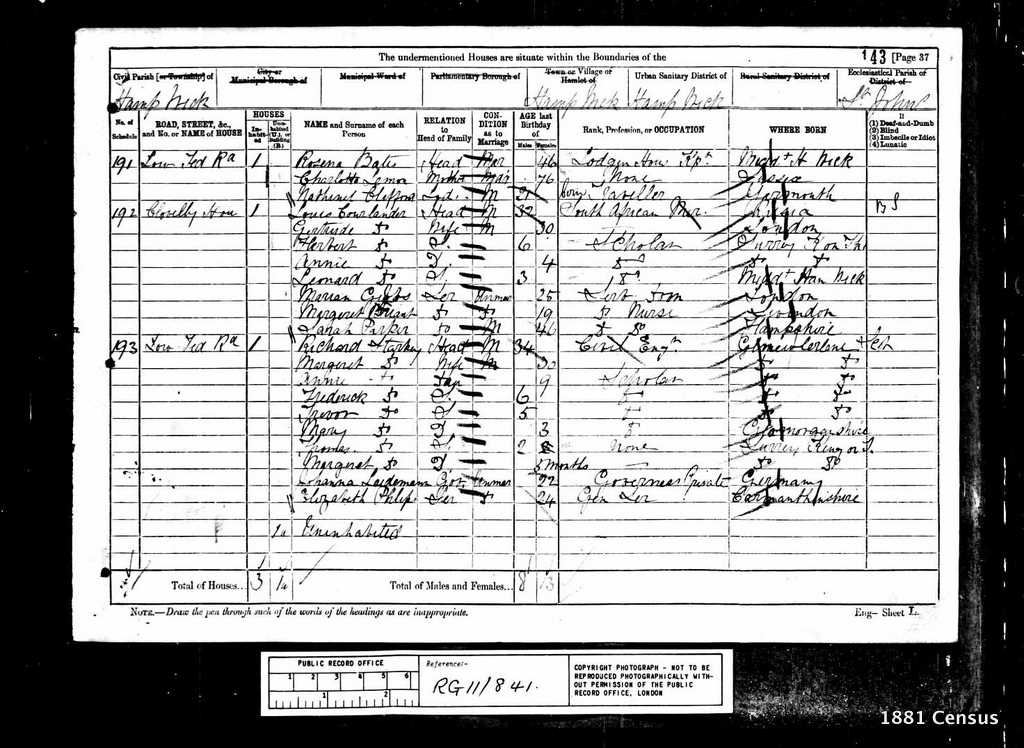 The undermentioned Houses are situate within the Boundaries of the
143 [Page 37
Civil Parish [or Township] of
City or Municipal Borough of
Municipal Ward of
Parliamentary Borough of
Town or Village or Hamlet of
Urban Sanitary District of
Rural Sanitary District of
Ecclesiastical Parish or District of
Hamp Wick Hamp Wick Hamp Wick St John
No. of Schedule
ROAD, STREET, &c., and No. or NAME of HOUSE
HOUSES
Inhabited
Uninhabited (U.), or Building (B.)
NAME and Surname of each Person
RELATION to Head of Family
CONDITION as to Marriage
AGE last Birthday of
Males Females
Rank, Profession, or OCCUPATION
WHERE BORN
If
(1) Deaf-and-Dumb
(2) Blind
(3) Imbecile or Idiot
(4) Lunatic
191 Low Ted Rd 1 Rosena Bates Head Mar 46 Lodgin Hou Kpr Middx H Wick
Charlotte Lemon Mother Mar 76 None
Clifford Lod M 21 Traveller Yarmouth
192 Hou 1 Louis Head M 32 South African Mer. Russia B S
Gertrude Do Wife M 30 London
Herbert Do S. 6 Scholar Surrey K on Th
Annie Do D. 4 Do Do Do
Leonard Do S. 3 Middx Ham Wick
Marian Gibbs Ser Unmar 25 Serv Dom London
Margaret Do Do 19 Do Nurse Swindon
Sarah Parker Do M 46 Do Do Hampshire
193 Low Ted Rd 1 Richard Head M 34 Civil Engr
Margaret Do Wife M 30 Do Do
Annie Do 9 Scholar Do Do
Frederick Do S. 6 Do Do Do
Trevor Do S. 5 Do Do Do
Mary Do D. 3 Do Glamorganshire
Thomas Do S. 2 None Surrey
Margaret Do D. 5 months Do Do
Johanna Leidemann Gov Unmar 22 Governess Private Germany
Elizabeth Philip Ser Do 24 Gen Ser Carmarthenshire
1u Uninhabited
Total of Houses... 3 1u Total of Males and Females... 8 13
NOTE.—Draw the pen through such of the words of the headings as are inappropriate.
Eng— Sheet L.
PUBLIC RECORD OFFICE
1 2 3 4 5 6
1 2
Reference:-
RG 11/841.
COPYRIGHT PHOTOGRAPH - NOT TO BE
REPRODUCED PHOTOGRAPHICALLY WITH-
OUT PERMISSION OF THE PUBLIC
RECORD OFFICE, LONDON
1881 Census